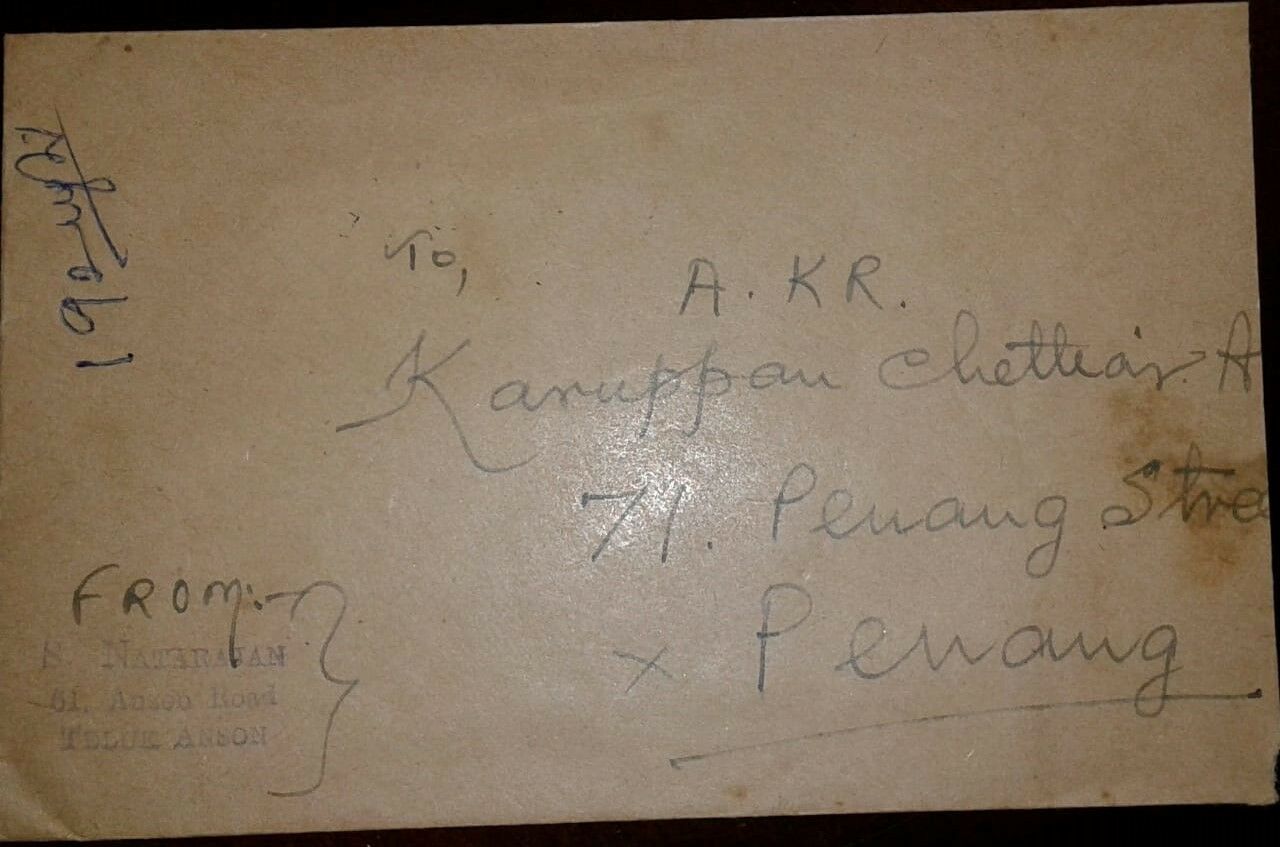 To,
A. KR.
Karuppan Chettiar. A
71. Penang Stre
x Penang
FROM:-
S. NATARAJAN
61, Anson Road
TELUK ANSON